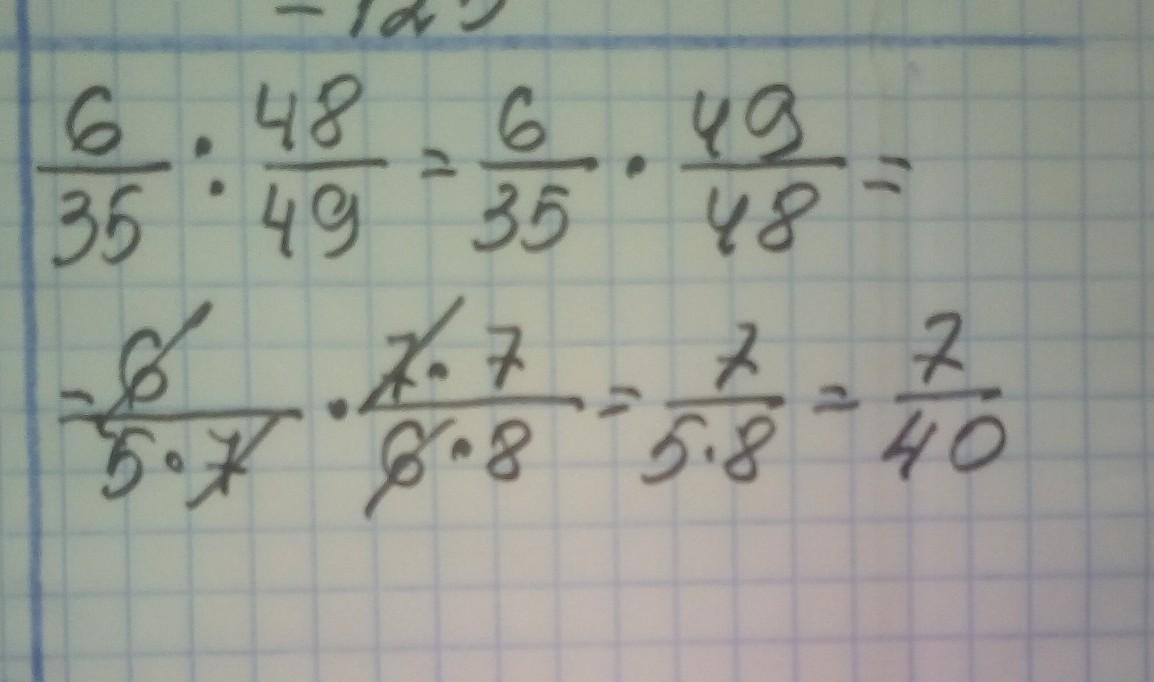 6/35 : 48/49 = 6/35 · 49/48 =
= 6/5·7 · 7·7/6·8 = 7/5·8 = 7/40